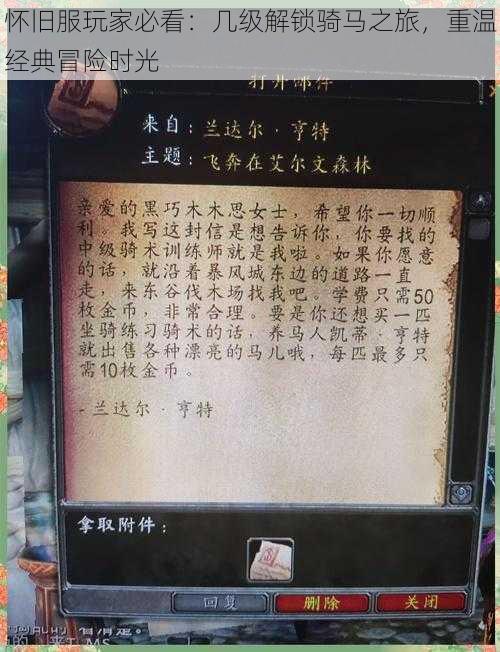 怀旧服玩家必看：几级解锁骑马之旅，重温
经典冒险时光
打开邮件
来自：兰达尔·亨特
主题：飞奔在艾尔文森林
亲爱的黑巧木木思女士，希望你一切顺
利。我写这封信是想告诉你，你要找的
中级骑术训练师就是我啦。如果你愿意
的话，就沿着暴风城东边的道路一直
走，来东谷伐木场找我吧。学费只需50
枚金币，非常合理。要是你还想买一匹
坐骑练习骑术的话，养马人凯蒂·亨特
就出售各种漂亮的马儿哦，每匹最多只
需10枚金币。
-兰达尔·亨特
拿取附件：
回复
删除
关闭